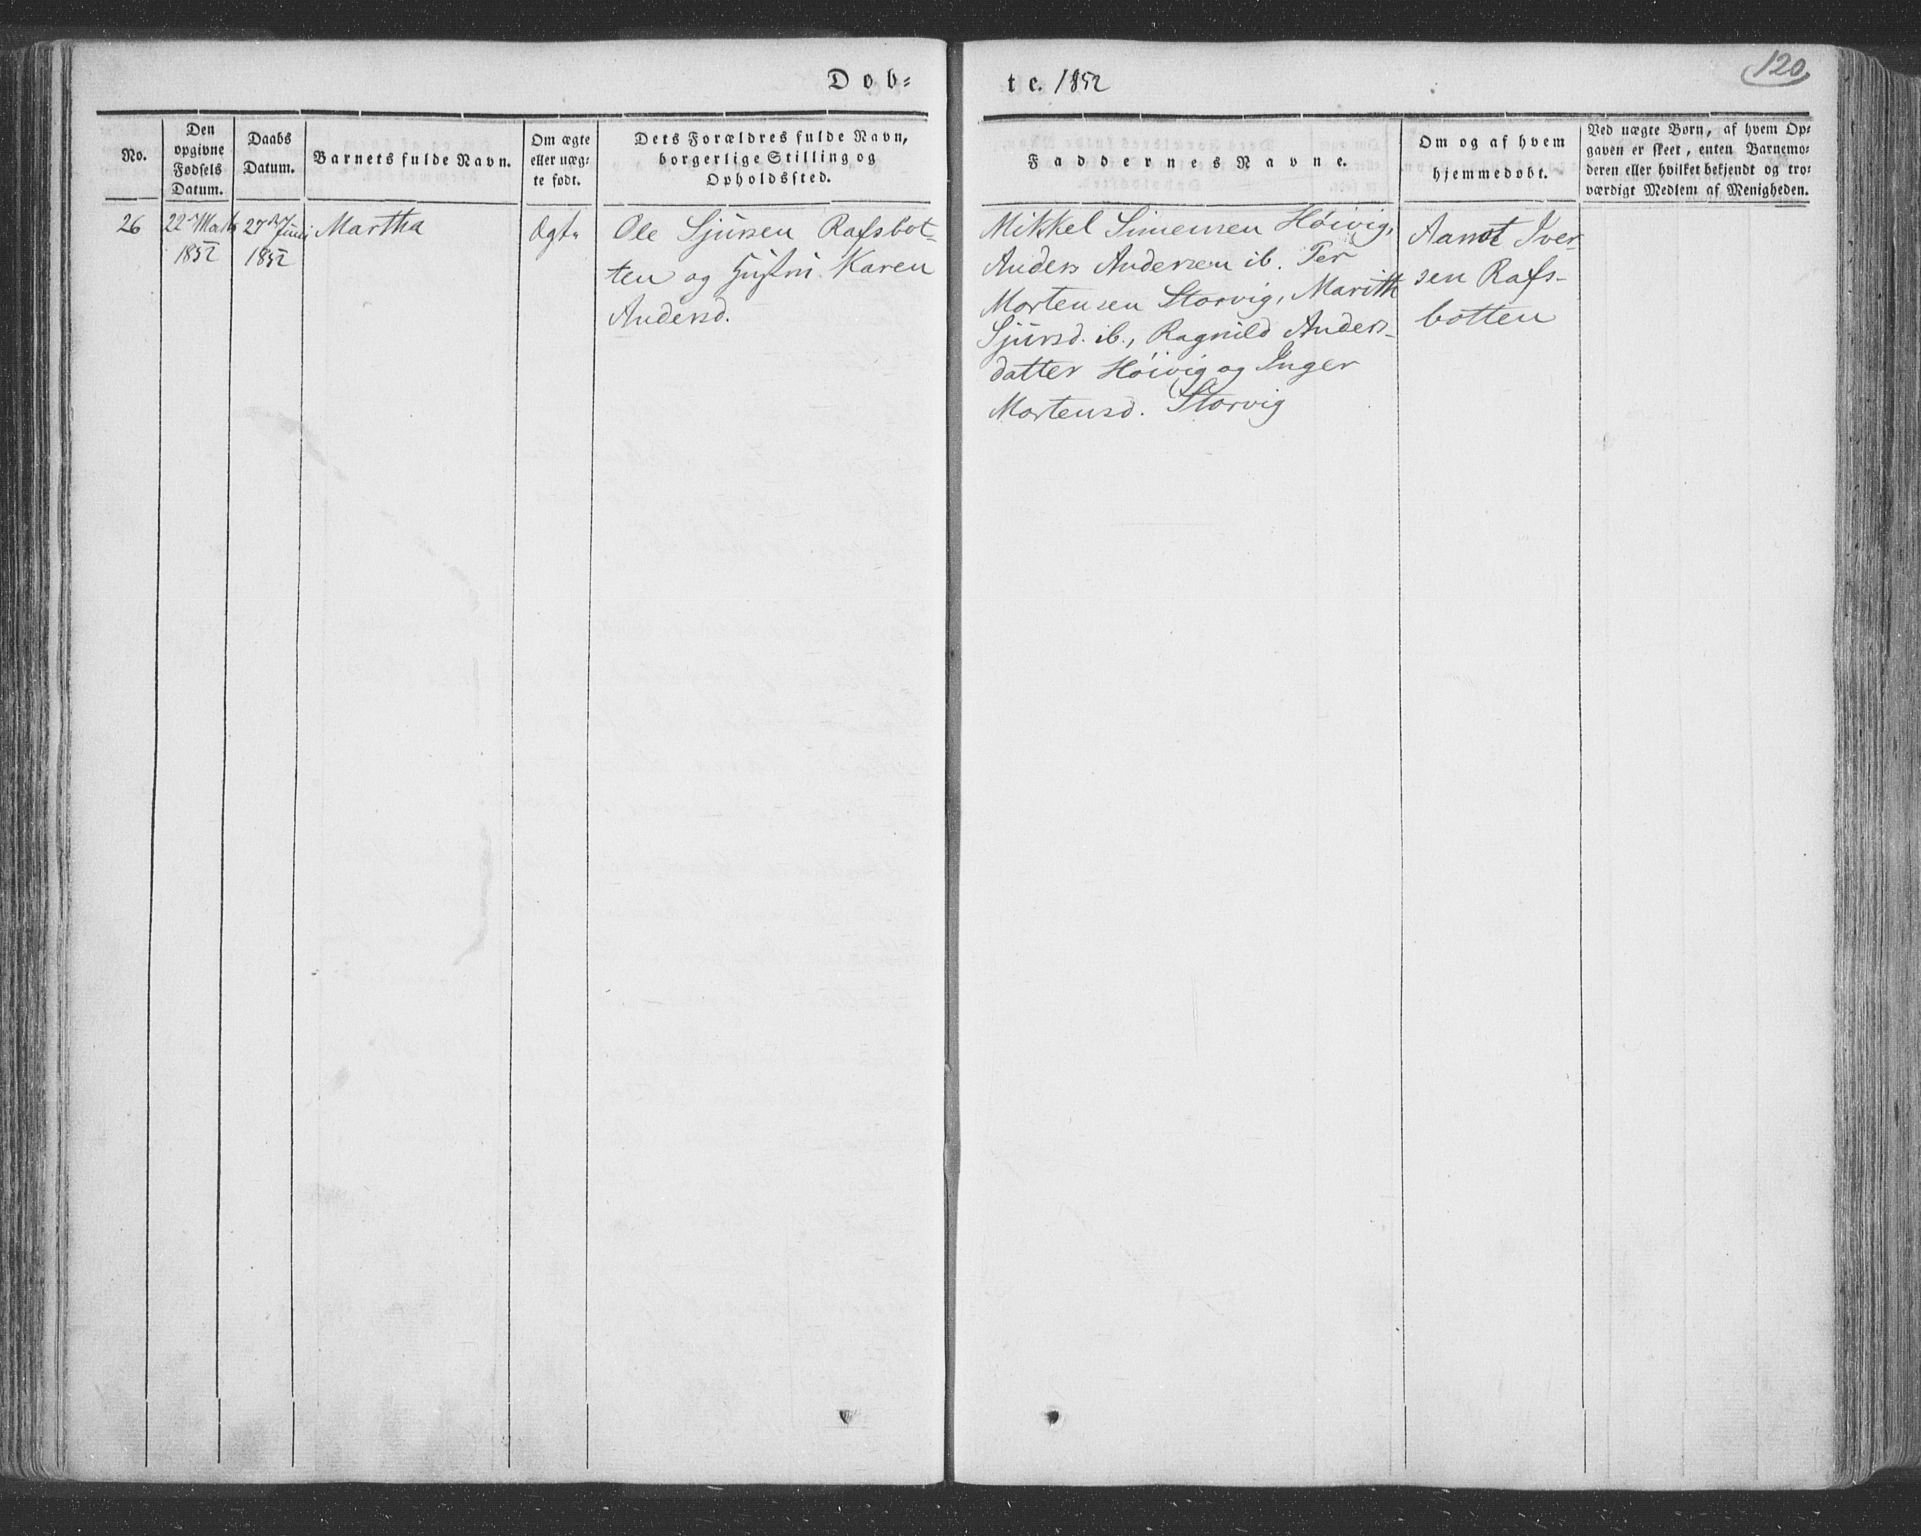 Dob-
te. 1852
120
No.
Den
opgivne
Fødsels
Datum.
Daabs
Datum.
Barnets fulde Navn.
Om ægte
eller uæg-
te født.
Dets Forældres fulde Navn,
borgerlige Stilling og
Opholdssted.
Faddernes Navne.
Om og af hvem
hjemmedøbt.
Ved uægte Børn, af hvem Op-
gaven er skeet, enten Barnemo-
deren eller hvilket bekjendt og tro-
værdigt Medlem af Menigheden.
26
22
1852
27 Juni
1852
Martha
Ægte
Ole Sjursen Rafsbot-
ten og Hustru Karen
Andersd.
Mikkel Simensen Höivig,
Anders Andersen ib. Per
Mortensen Storvig, Marith
Sjursd. ib., Ragnild Anders-
datter Höivig og Inger
Mortensd. Storvig
Iver-
sen Rafs-
botten